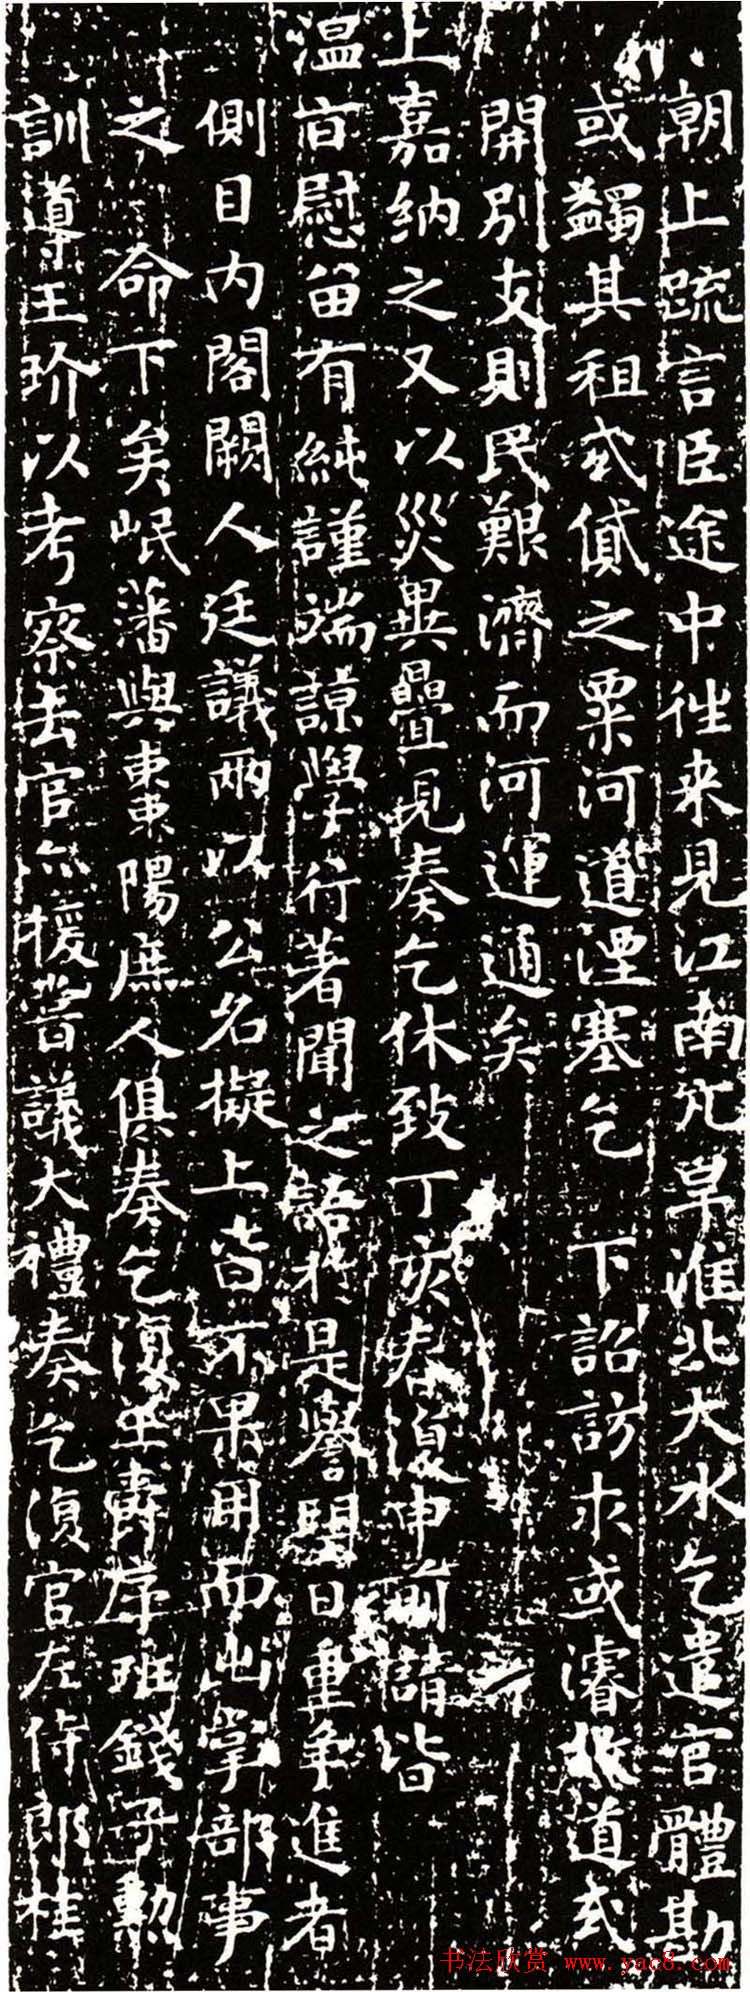 朝上疏言臣途中往来見江南亢旱淮北大水乞遣官體勘
或蠲其租或貸之粟河道湮塞乞 下詔訪求或濬故道或
開別支則民艱濟而河運通矣
上嘉納之又以災異疊見奏乞休致丁亥春復申前請皆
温旨慰留有純謹端諒學行著聞之語於是譽望日重争進者
側目内閣闕人廷議兩以公名擬上皆不果用而出掌部事
之 命下矣岷藩與東東陽庶人俱奏乞復王壽序班錢子勲
訓導王玠以考察去官亦援昔議大禮奏乞復官左侍郎桂
书法欣赏 www.yac8.com